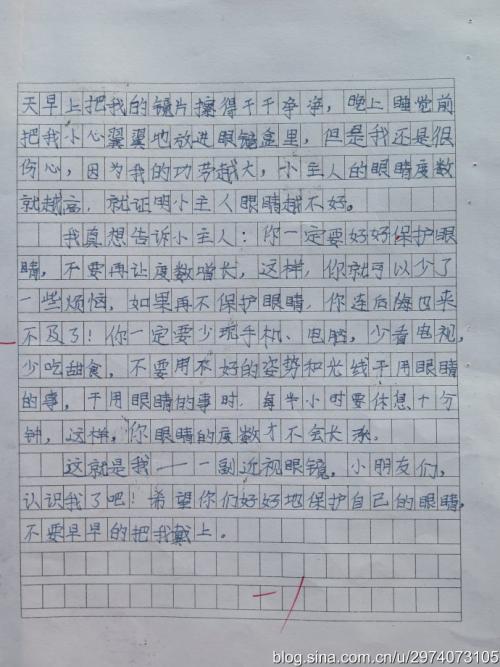 天早上把我的镜片擦得干干净净，晚上睡觉前
把我小心翼翼地放进眼镜盒里，但是我还是很
伤心，因为我的功劳越大，小主人的眼睛度数
就越高，就证明小主人眼睛越不好。
我真想告诉小主人：你一定要好好保护眼
睛，不要再让度数增长，这样，你就可以少了
一些烦恼，如果再不保护眼睛，你连后悔也来
不及了！你一定要少玩手机、电脑，少看电视，
少吃甜食，不要用不好的姿势和光线干用眼睛
的事，干用眼睛的事时，每半小时要休息十分
钟，这样，你眼睛的度数才不会长
这就是我——一副近视眼镜，小朋友们，
认识我了吧！希望你们好好地保护自己的眼睛，
不要早早的把我戴上。
blog.sina.com.cn/u/2974073105